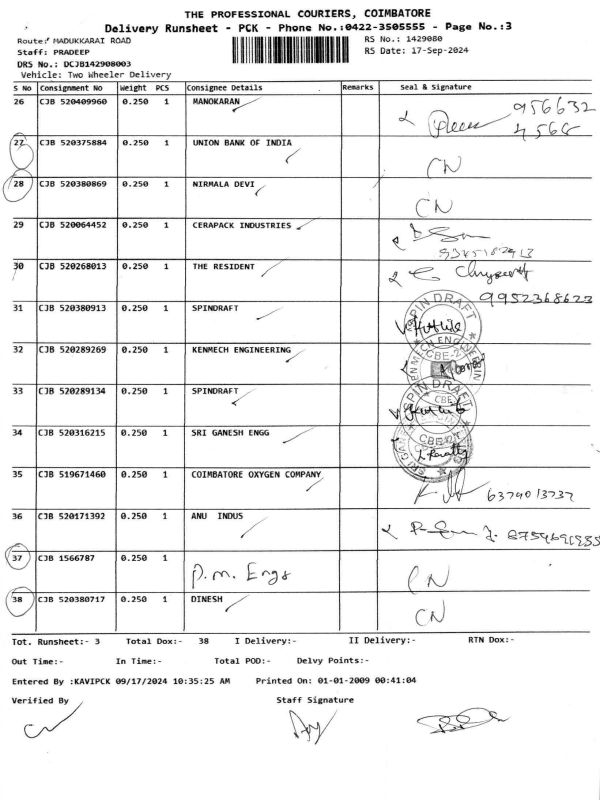 THE PROFESSIONAL COURIERS, COIMBATORE
Delivery Runsheet - PCK - Phone No.:0422-3505555 - Page No.:3
Route: MADUKKARAI ROAD
RS No.: 1429080
Staff: PRADEEP
RS Date: 17-Sep-2024
DRS No.: DCJB142908003
Vehicle: Two Wheeler Delivery
S No Consignment No Weight PCS Consignee Details Remarks Seal & Signature
26 CJB 520409960 0.250 1 MANOKARAN 956632
4566
27 CJB 520375884 0.250 1 UNION BANK OF INDIA CN
28 CJB 520380869 0.250 1 NIRMALA DEVI CN
29 CJB 520064452 0.250 1 CERAPACK INDUSTRIES
30 CJB 520268013 0.250 1 THE RESIDENT
9952368623
31 CJB 520380913 0.250 1 SPINDRAFT SPIN DRAFT
32 CJB 520289269 0.250 1 KENMECH ENGINEERING
33 CJB 520289134 0.250 1 SPINDRAFT SPIN DRAFT
34 CJB 520316215 0.250 1 SRI GANESH ENGG
35 CJB 519671460 0.250 1 COIMBATORE OXYGEN COMPANY 6379013737
36 CJB 520171392 0.250 1 ANU INDUS
37 CJB 1566787 0.250 1 P.M. Engs CN
38 CJB 520380717 0.250 1 DINESH CN
Tot. Runsheet:- 3 Total Dox:- 38 I Delivery:- II Delivery:- RTN Dox:-
Out Time:- In Time:- Total POD:- Delvy Points:-
Entered By :KAVIPCK 09/17/2024 10:35:25 AM Printed On: 01-01-2009 00:41:04
Verified By Staff Signature